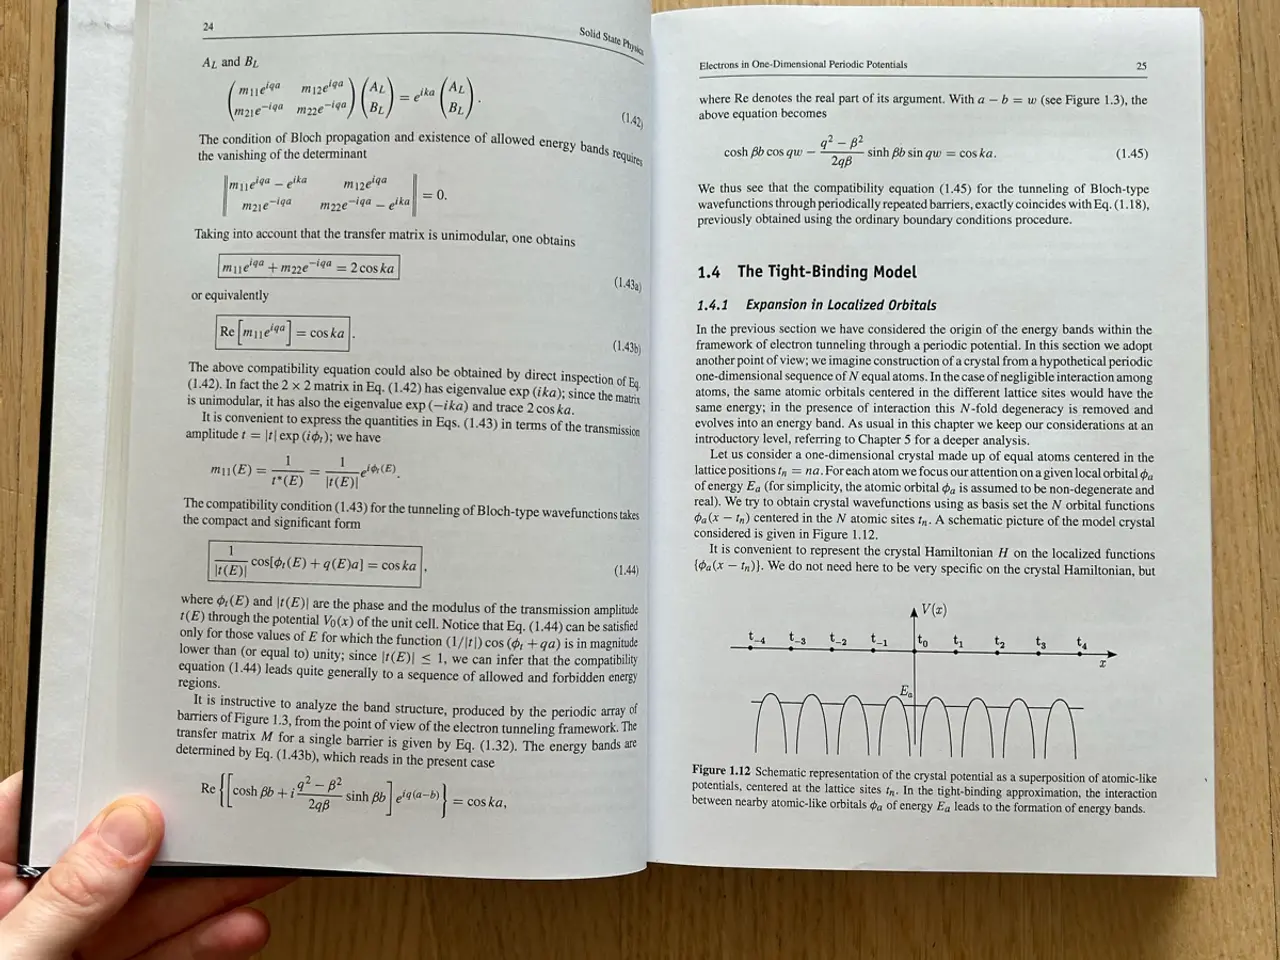 24
Solid State Physics
A_L and B_L
(m₁₁e^{iqa} m₁₂e^{iqa}) (A_L) = e^{ika} (A_L) .
(m₂₁e^{−iqa} m₂₂e^{−iqa}) (B_L) (B_L)
(1.42)
The condition of Bloch propagation and existence of allowed energy bands requires
the vanishing of the determinant
‖m₁₁e^{iqa} − e^{ika} m₁₂e^{iqa}‖
‖m₂₁e^{−iqa} m₂₂e^{−iqa} − e^{ika}‖ = 0.
Taking into account that the transfer matrix is unimodular, one obtains
m₁₁e^{iqa} + m₂₂e^{−iqa} = 2 cos ka
(1.43a)
or equivalently
Re [m₁₁e^{iqa}] = cos ka .
(1.43b)
The above compatibility equation could also be obtained by direct inspection of Eq.
(1.42). In fact the 2 × 2 matrix in Eq. (1.42) has eigenvalue exp (ika); since the matrix
is unimodular, it has also the eigenvalue exp (−ika) and trace 2 cos ka.
It is convenient to express the quantities in Eqs. (1.43) in terms of the transmission
amplitude t = |t| exp (iϕ_t); we have
m₁₁(E) = 1/t*(E) = 1/|t(E)| e^{iϕ_t(E)}.
The compatibility condition (1.43) for the tunneling of Bloch-type wavefunctions takes
the compact and significant form
1/|t(E)| cos[ϕ_t(E) + q(E)a] = cos ka , (1.44)
where ϕ_t(E) and |t(E)| are the phase and the modulus of the transmission amplitude
t(E) through the potential V₀(x) of the unit cell. Notice that Eq. (1.44) can be satisfied
only for those values of E for which the function (1/|t|) cos (ϕ_t + qa) is in magnitude
lower than (or equal to) unity; since |t(E)| ≤ 1, we can infer that the compatibility
equation (1.44) leads quite generally to a sequence of allowed and forbidden energy
regions.
It is instructive to analyze the band structure, produced by the periodic array of
barriers of Figure 1.3, from the point of view of the electron tunneling framework. The
transfer matrix M for a single barrier is given by Eq. (1.32). The energy bands are
determined by Eq. (1.43b), which reads in the present case
Re {[cosh βb + i (q² − β²)/(2qβ) sinh βb] e^{iq(a−b)}} = cos ka,
Electrons in One-Dimensional Periodic Potentials 25
where Re denotes the real part of its argument. With a − b = w (see Figure 1.3), the
above equation becomes
cosh βb cos qw − (q² − β²)/(2qβ) sinh βb sin qw = cos ka. (1.45)
We thus see that the compatibility equation (1.45) for the tunneling of Bloch-type
wavefunctions through periodically repeated barriers, exactly coincides with Eq. (1.18),
previously obtained using the ordinary boundary conditions procedure.
1.4 The Tight-Binding Model
1.4.1 Expansion in Localized Orbitals
In the previous section we have considered the origin of the energy bands within the
framework of electron tunneling through a periodic potential. In this section we adopt
another point of view; we imagine construction of a crystal from a hypothetical periodic
one-dimensional sequence of N equal atoms. In the case of negligible interaction among
atoms, the same atomic orbitals centered in the different lattice sites would have the
same energy; in the presence of interaction this N-fold degeneracy is removed and
evolves into an energy band. As usual in this chapter we keep our considerations at an
introductory level, referring to Chapter 5 for a deeper analysis.
Let us consider a one-dimensional crystal made up of equal atoms centered in the
lattice positions t_n = na. For each atom we focus our attention on a given local orbital ϕ_a
of energy E_a (for simplicity, the atomic orbital ϕ_a is assumed to be non-degenerate and
real). We try to obtain crystal wavefunctions using as basis set the N orbital functions
ϕ_a(x − t_n) centered in the N atomic sites t_n. A schematic picture of the model crystal
considered is given in Figure 1.12.
It is convenient to represent the crystal Hamiltonian H on the localized functions
{ϕ_a(x − t_n)}. We do not need here to be very specific on the crystal Hamiltonian, but
V(x)
t₋₄ t₋₃ t₋₂ t₋₁ t₀ t₁ t₂ t₃ t₄
x
E_a
Figure 1.12 Schematic representation of the crystal potential as a superposition of atomic-like
potentials, centered at the lattice sites t_n. In the tight-binding approximation, the interaction
between nearby atomic-like orbitals ϕ_a of energy E_a leads to the formation of energy bands.